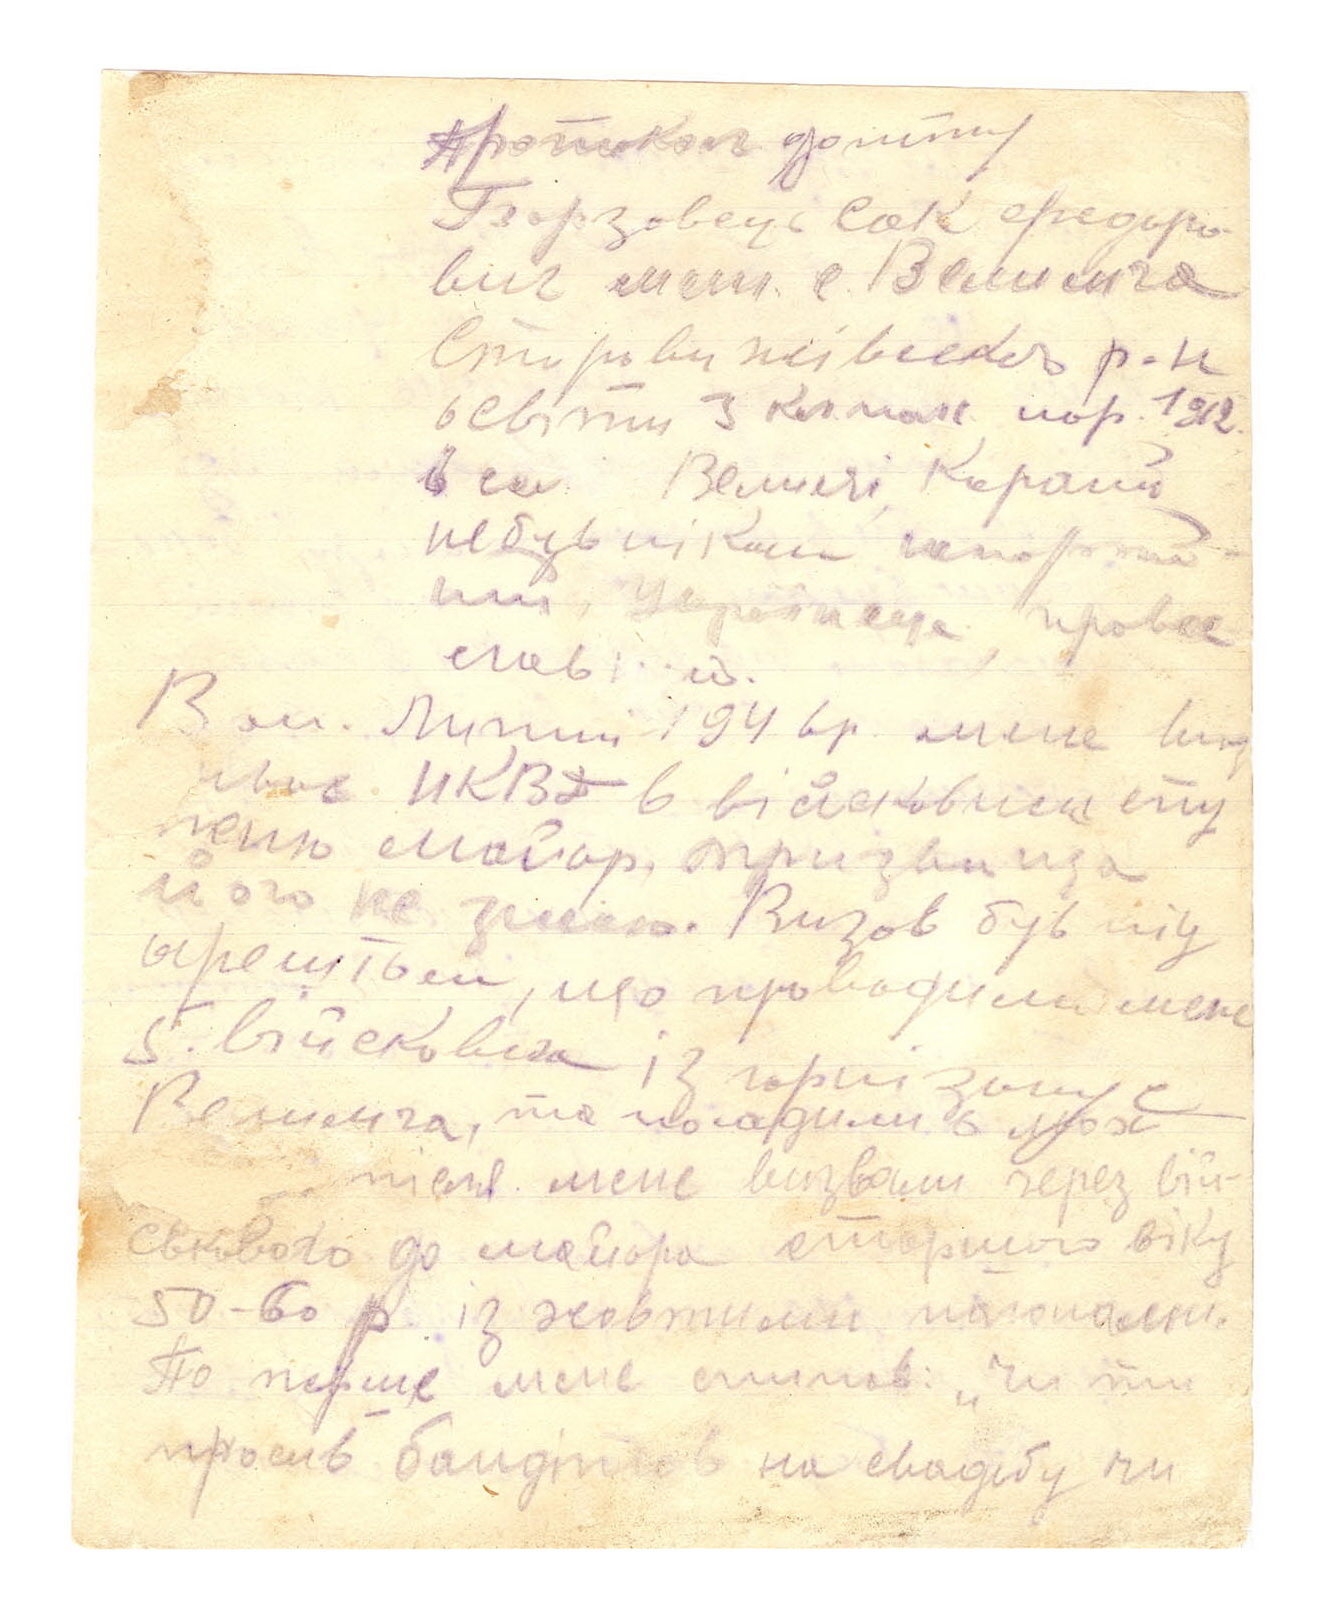 Протокол допиту
Сак Федоро-
вич меш. с. Велимча
р-н
освіти 3 кл. нар. 1912
в сел Велимчі, Караний
небув ніколи
ний, Українець, право
славний.
В м. Липні 194 р. мене виз
НКВД в військовим сту
пеню майор, призвища
його не знаю. Визов був під
арештом, що провадили мене
5. військових із гарнізону с
Велимча, та посадили в льох
після мене визвали через вій-
ськового до майора старшого віку
50-60 р. із жовтими пагонами.
По перше мене спитав: „Чи ти
просив бандитів на свадьбу чи